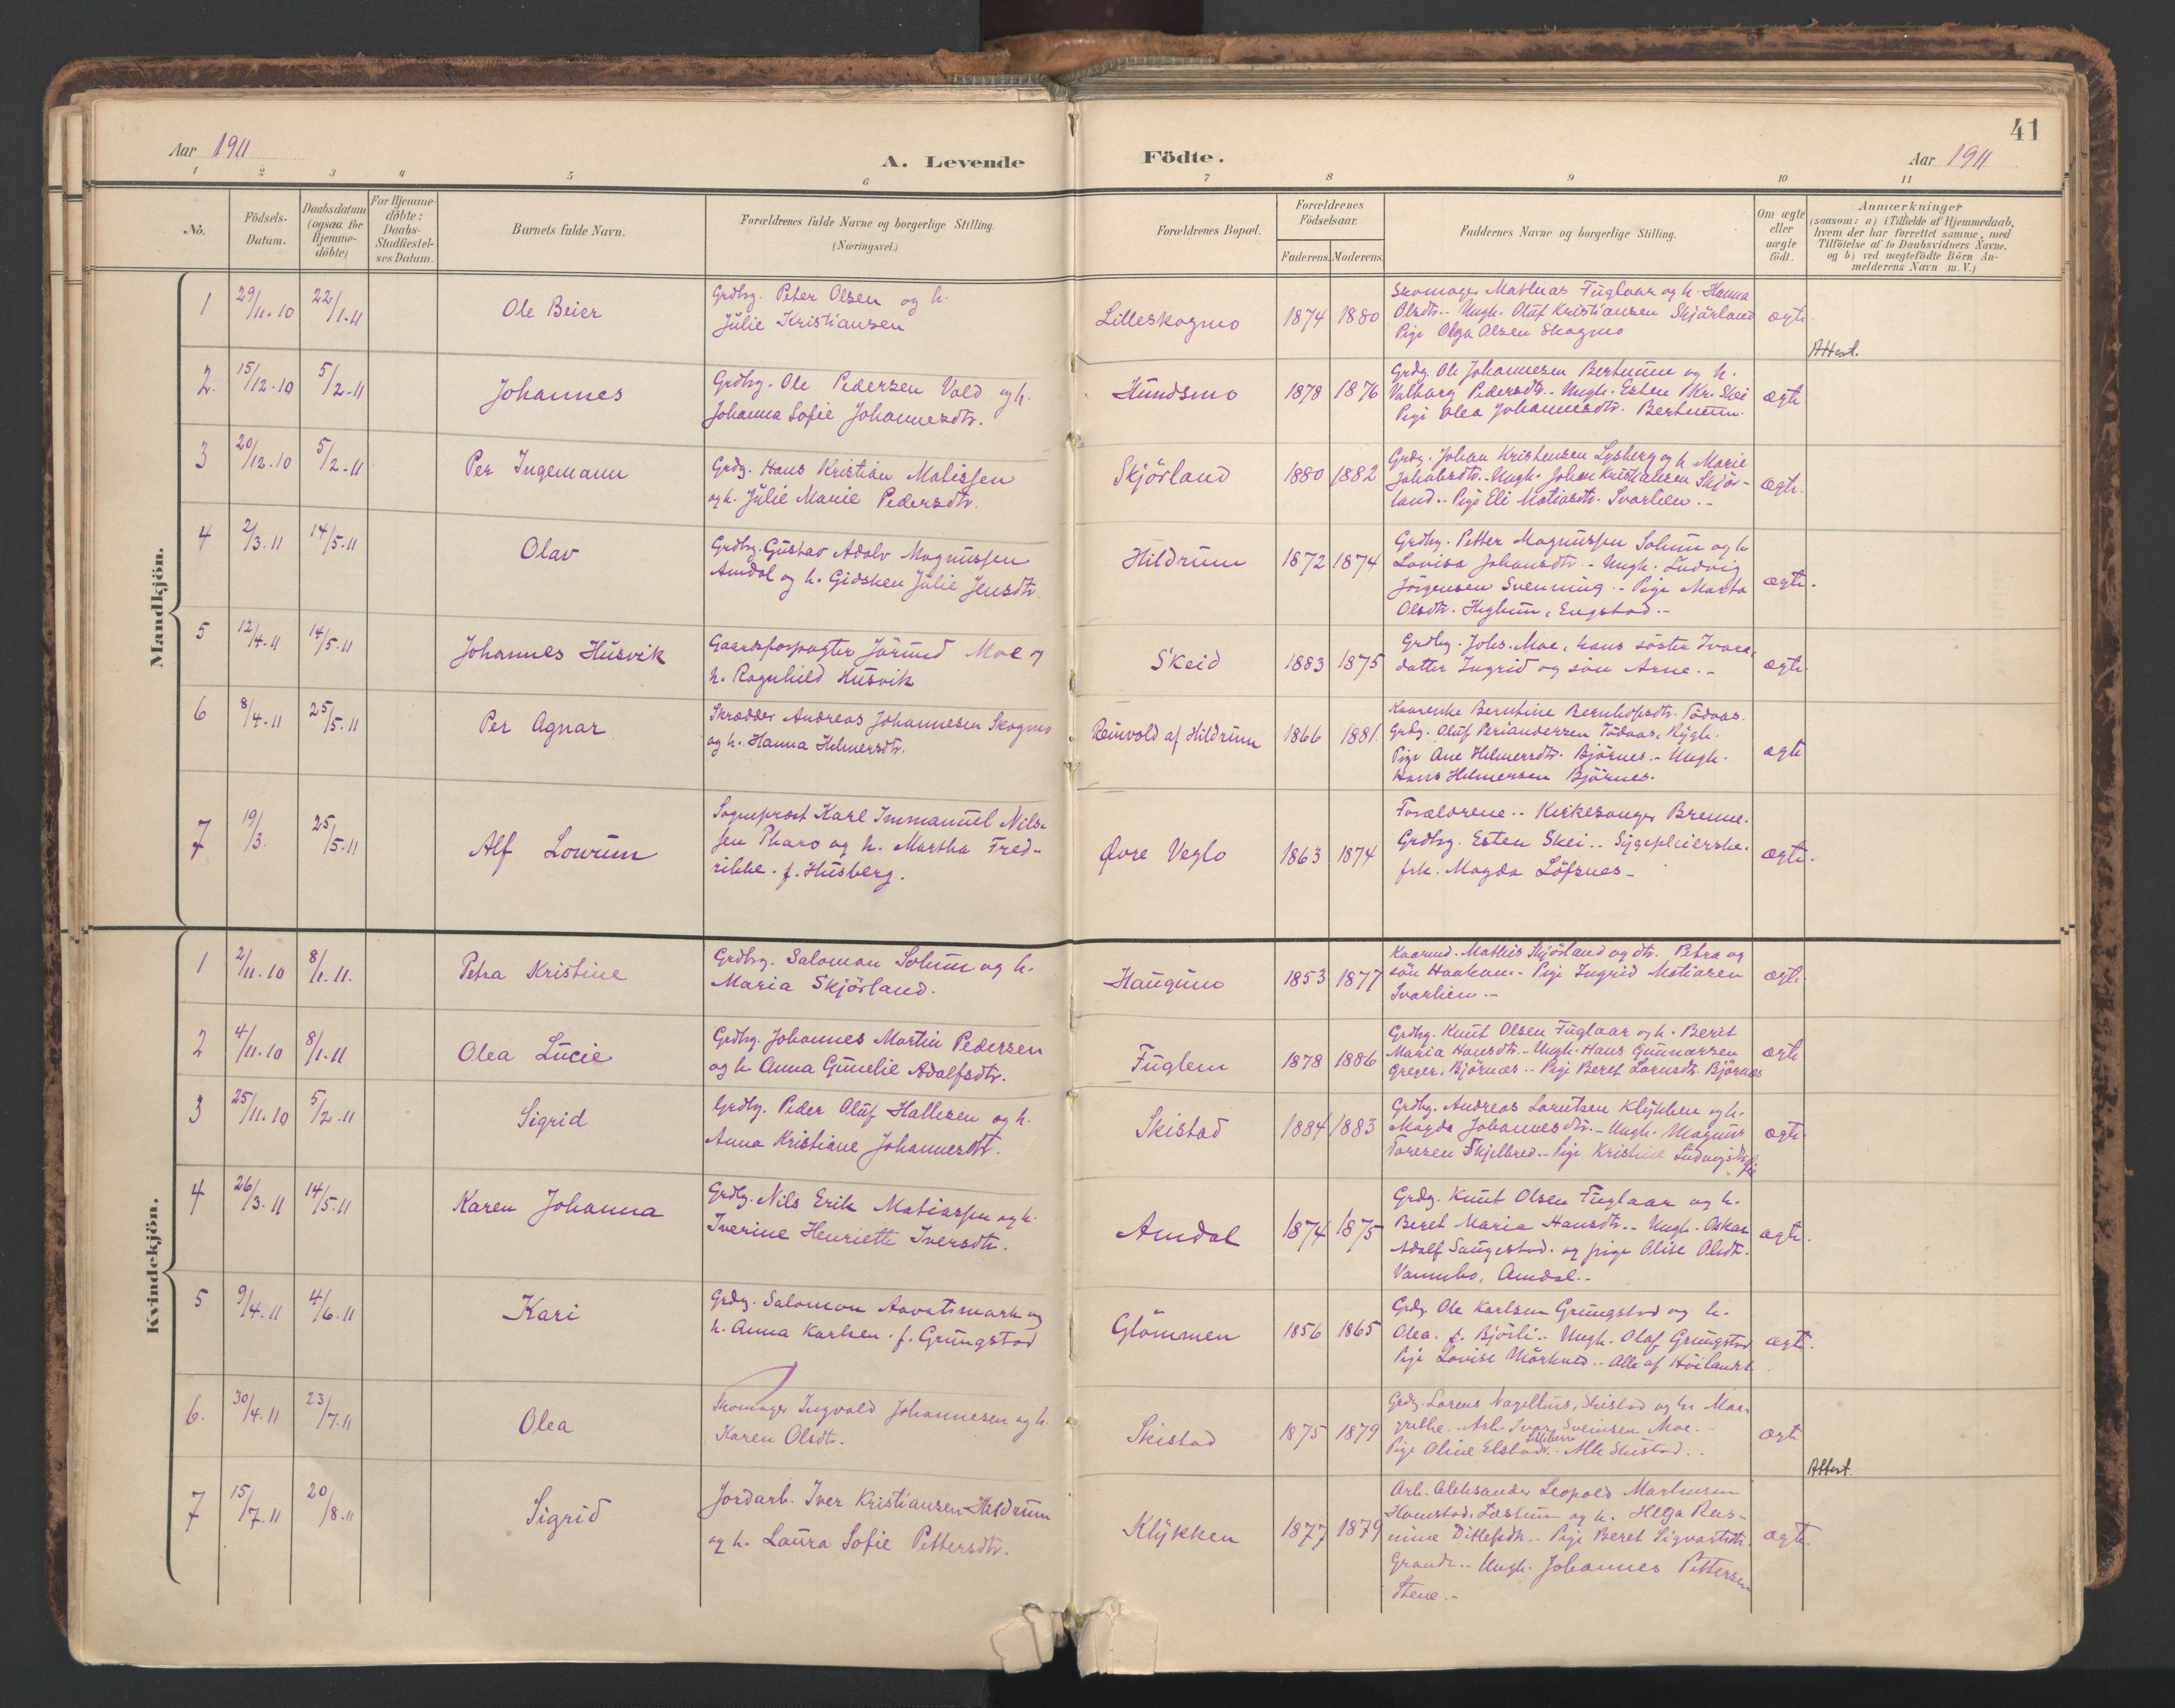 41
Aar 1911
A. Levende Födte.
Aar 1911
1 2 3 4 5 6 7 8 9 10 11
No.
Födsels-Datum.
Daabsdatum (ogsaa for Hjemmedöbte)
For Hjemmedöbte: Daabs-Stadfæstelses Datum.
Barnets fulde Navn.
Forældrenes fulde Navne og borgerlige Stilling.
(Næringsvei.)
Forældrenes Bopæl.
Forældrenes Födselsaar.
Faderens. Moderens.
Faddernes Navne og borgerlige Stilling.
Om ægte eller uægte födt.
Anmærkninger
(saasom: a) i Tilfælde af Hjemmedaab,
hvem der har forrettet samme, med
Tilföielse af to Daabsvidners Navne.
og b) ved uegtefödte Börn An-
melderens Navn m. V.)
Mandkjön.
1 29/11.10 22/1.11 Ole Beier
Grdbrg. Peter Olsen og h.
Julie Kristiansen
Lilleskogmo 1874 1880
Skomager Mathias Fuglaar og h. Hanna
Olsdtr. - Ungk. Oluf Kristiansen Skjörland
Pige Olga Olsen Skogmo
ægte.
2. 15/12.10 5/2.11 Johannes
Grdbrg. Ole Pedersen Vold og h.
Johanna Sofie Johannesdtr.
Hundsmo 1878 1876
Grdbg. Ole Johannesen Bertnum og h.
Valborg Pedersdtr. - Ungk. Esten P.Kr. Skei
Pige Olea Johannesdtr. Bertnum.
ægte
Attest.
3 20/12.10 5/2.11 Per Ingemann
Grdbg. Hans Kristian Matissen
og h. Julie Marie Pedersdtr.
Skjörland 1880 1882
Grdbg. Johan Kristensen Lysberg og h. Marie
Johansdtr. - Ungk. Johan Kristiansen Skjör-
land. - Pige Eli Matiasdtr. Svarlien. -
ægte.
4 2/3.11 14/5.11 Olav
Grdbrg. Gustav Adolv Magnussen
Amdal og h. Gidsken Julie Jensdtr.
Hildrum 1872 1874
Grdbrg. Petter Magnussen Solum og h
Lovisa Johansdtr. - Ungk. Ludvig
Jörgensen Svenning. - Pige Marta
Olsdtr. Høglum, Engstad. -
ægte.
5 12/4.11 14/5.11 Johannes Husvik
Gaardsforpagter Jörund Moe og
h. Ragnhild Husvik
Skeid 1883 1875
Grdbrg. Johs. Moe, hans söster
datter Ingrid og sön Arne. -
ægte
6 8/4.11 25/5.11 Per Agnar
Skrædder Andreas Johannesen Skogmo
og h. Hanna Helmersdtr.
Reinvold af Hildrum 1866 1881
Kaarenke Berntine Bernhofsdtr. Tödaas.
Grdbg. Oluf Periandersen Tödaas,
Pige Ane Helmersdtr. Björnes. - Ungk.
Hans Helmersen Björnes.
ægte
7 19/3. 25/5.11 Alf Lowrum
Sogneprest Karl Immanuel Nils-
sen Tharo og h. Martha Fred-
rikke. f. Husberg.
Øvre Veglo 1863 1874
Forældrene. - Kirkesanger Brenne.
Grdbrg. Esten Skei. - Sygepleierske.
frk. Magda Löfsnes -
ægte.
Kvindekjön.
1 2/11.10 8/1.11. Petra Kristine
Grdbrg. Salomon Solum og h.
Maria Skjörland.
Haugum 1853 1877
Kaarmd. Mathis Skjörland og dtr. Petra og
sön Haakon. - Pige Ingrid Matiasen
Svarlien. -
ægte
2 4/11.10 8/1.11 Olea Lucie
Grdbrg. Johannes Martin Pedersen
og h Anna Gunelie Adolfsdtr.
Fuglem 1878 1886
Grdbrg. Knut Olsen Fuglaar og h. Beret
Maria Hansdtr. - Ungk. Hans Gunnarsen
Greger, Björnes. - Pige Beret Lornsdtr. Björnes
ægte
3 25/11.10 5/2.11 Sigrid
Grdbrg. Peder Oluf Hallesen og h.
Anna Kristiane Johannesdtr.
Skistad 1884 1883
Grdbg. Andreas Lorntsen Klykken og h.
Magda Johannesdtr. - Ungk. Magnus
Toresen Skjelbred. - Pige Kristine Ludvigsdtr.
ægte
4 26/3.11 14/5.11 Karen Johanna
Grdbg. Nils Erik Matiassen og h.
Iverine Henriette Iversdtr.
Amdal 1874 1875
Grdbg. Knut Olsen Fuglaar og h.
Beret Maria Hansdtr. - Ungk. Oskar
Adolf Saugestad. og pige Alise Olsdtr.
Vannebo, Amdal. -
ægte.
5 9/4.11 4/6.11 Kari
Grdbg. Salomon Aavatsmark og
h. Anna Karlsen. f. Grungstad
Glömmen 1856 1865
Grdbg. Ole Karlsen Grungstad og h.
Olea. f. Björli. - Ungk. Olaf Grungstad
Pige Lovise Mörkved. - Alle af Höilandet
ægte.
6. 30/4.11 23/7.11 Olea
Skomager Ingvald Johannesen og h.
Karen Olsdtr.
Skistad 1875 1879
Grdbg. Lorens Nagellhus, Skistad og h. Mar-
grethe. - Arb. Ivar Sveinsen Moe. -
Pige Oline Elstad. - Alle Skistad. -
ægte
7 15/7.11 20/8.11 Sigrid
Jordarb. Iver Kristiansen Hildrum
og h. Laura Sofie Pettersdtr.
Klykken 1877 1879
Arb. Aleksander Leopold Martinsen
Homstad, Læstum og h. Helga Ras-
mine Ditlefsdtr. - Pige Beret Sigvartsdtr.
Grande. - Ungk. Johannes Pettersen
Stene. -
ægte.
Attest.